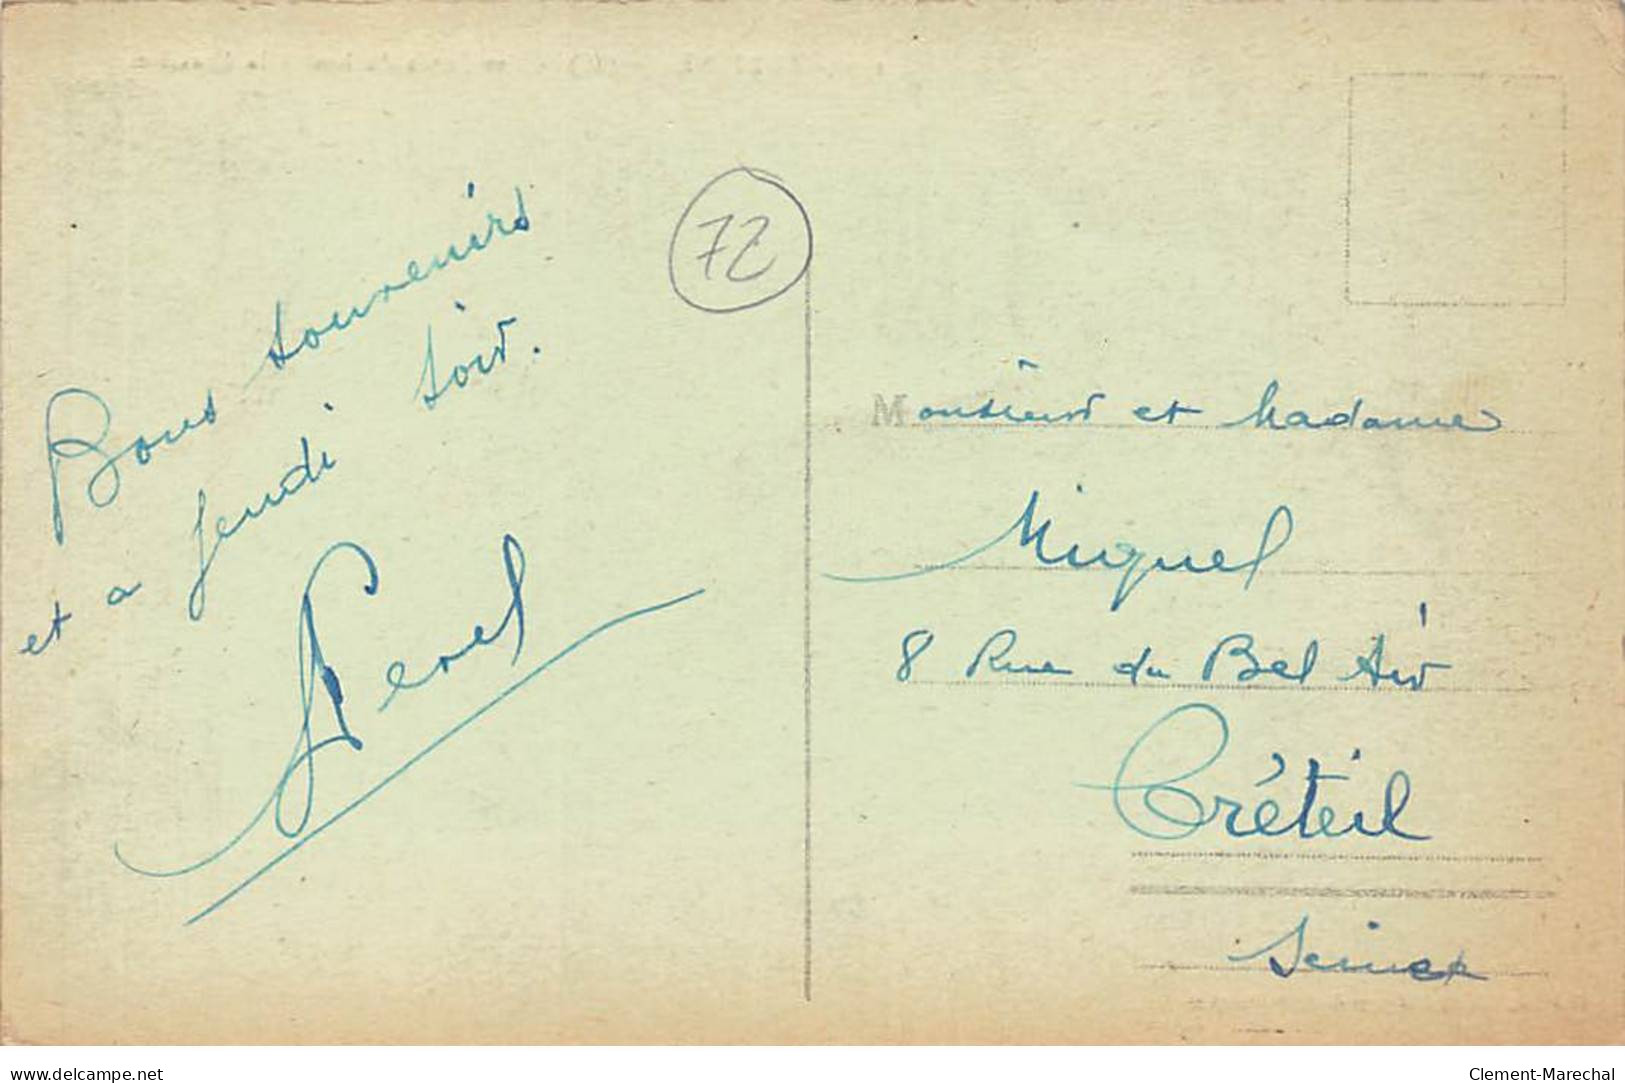 Bons souvenirs
et a jeudi soir.
72
Monsieur et Madame
Miquel
8 Rue du Bel Air
Créteil
Seine
www.delcampe.net
Clement-Marechal